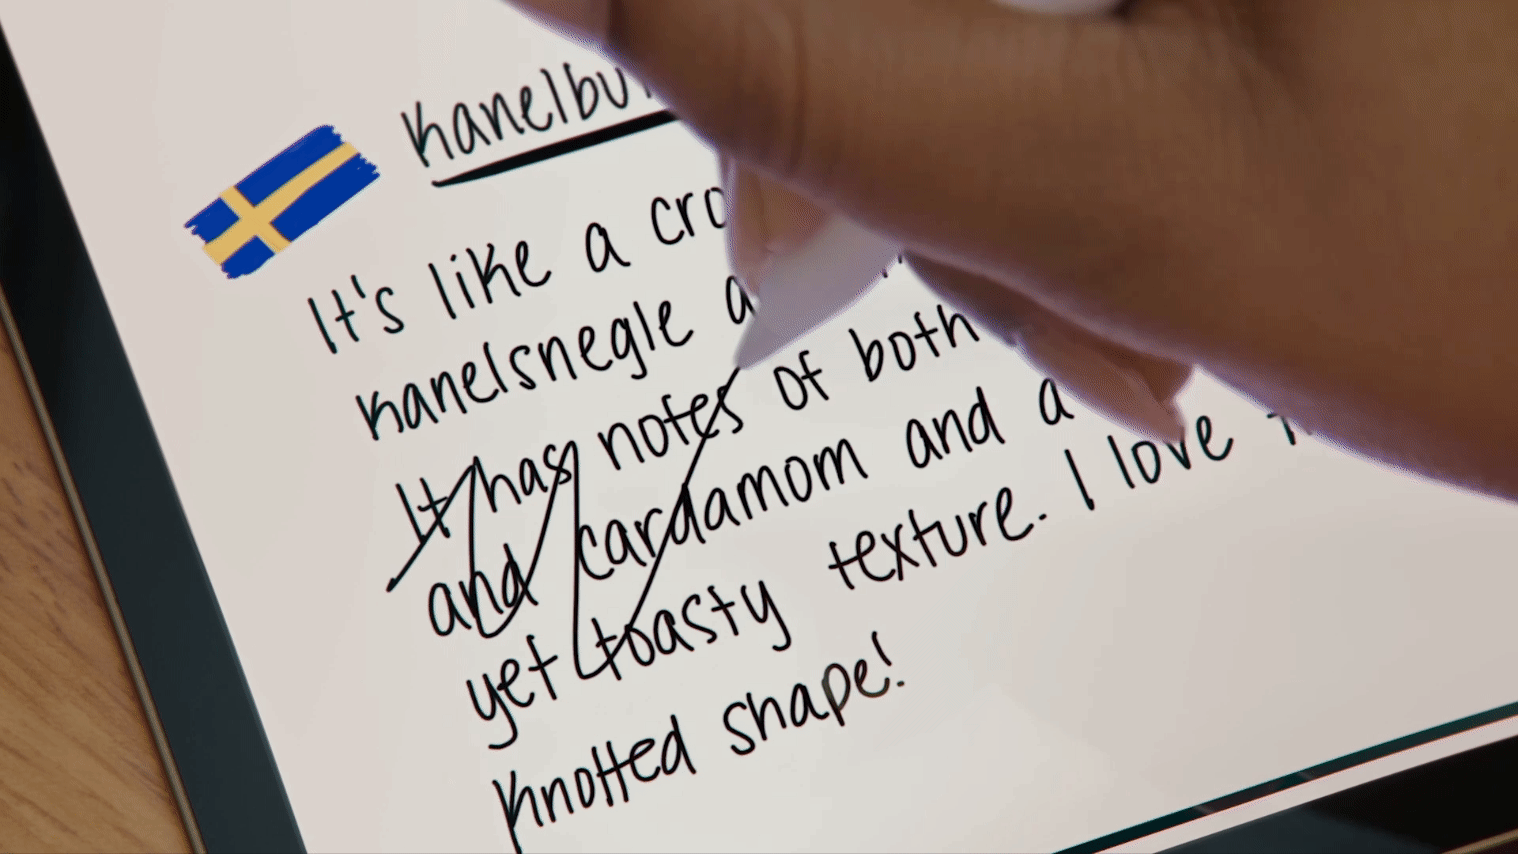 It's like a
kanelsnegle
It has notes of both
and cardamom and a
yet toasty texture. I love
knotted shape!